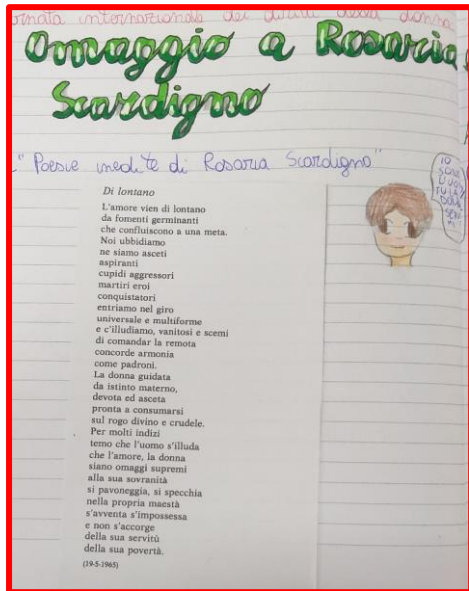 internazionale dei diritti della donna
Omaggio a Rosaria
Scardigno
"Poesie inedite di Rosaria Scardigno"
Di lontano
L'amore vien di lontano
da fomenti germinanti
che confluiscono a una meta.
Noi ubbidiamo
ne siamo asceti
aspiranti
cupidi aggressori
martiri eroi
conquistatori
entriamo nel giro
universale e multiforme
e c'illudiamo, vanitosi e scemi
di comandar la remota
concorde armonia
come padroni.
La donna guidata
da istinto materno,
devota ed asceta
pronta a consumarsi
sul rogo divino e crudele.
Per molti indizi
temo che l'uomo s'illuda
che l'amore, la donna
siano omaggi supremi
alla sua sovranità
si pavoneggia, si specchia
nella propria maestà
s'avventa s'impossessa
e non s'accorge
della sua servitù
della sua povertà.
(19-5-1965)
IO